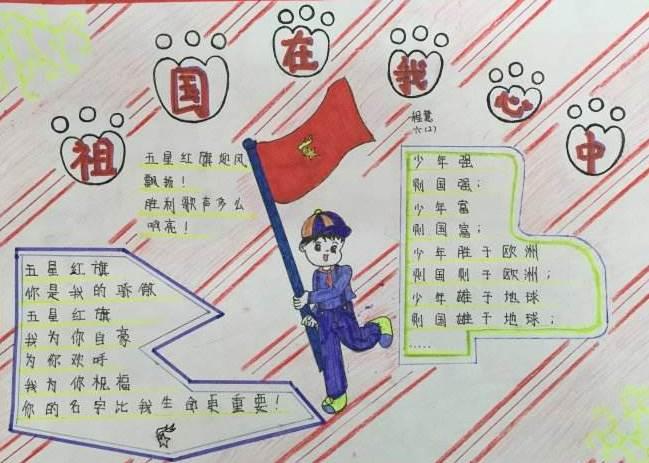 祖国在我心中
程慧
六(2)
五星红旗迎风
飘扬!
胜利歌声多么
响亮!
少年强
则国强;
少年富
则国富;
少年胜于欧洲
则国则于欧洲;
少年雄于地球
则国雄于地球;
.....
五星红旗
你是我的骄傲
五星红旗
我为你自豪
为你欢呼
我为你祝福
你的名字比我生命更重要!